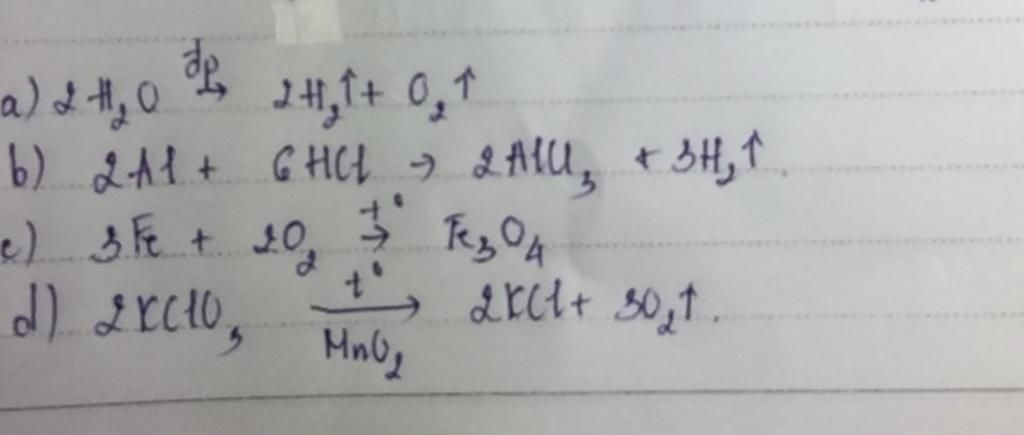 a) 2H₂O đp→ 2H₂↑ + O₂↑
b) 2Al + 6HCl → 2AlCl₃ + 3H₂↑.
c) 3Fe + 2O₂ t°→ Fe₃O₄
d) 2KClO₃ t°→ MnO₂ 2KCl + 3O₂↑.